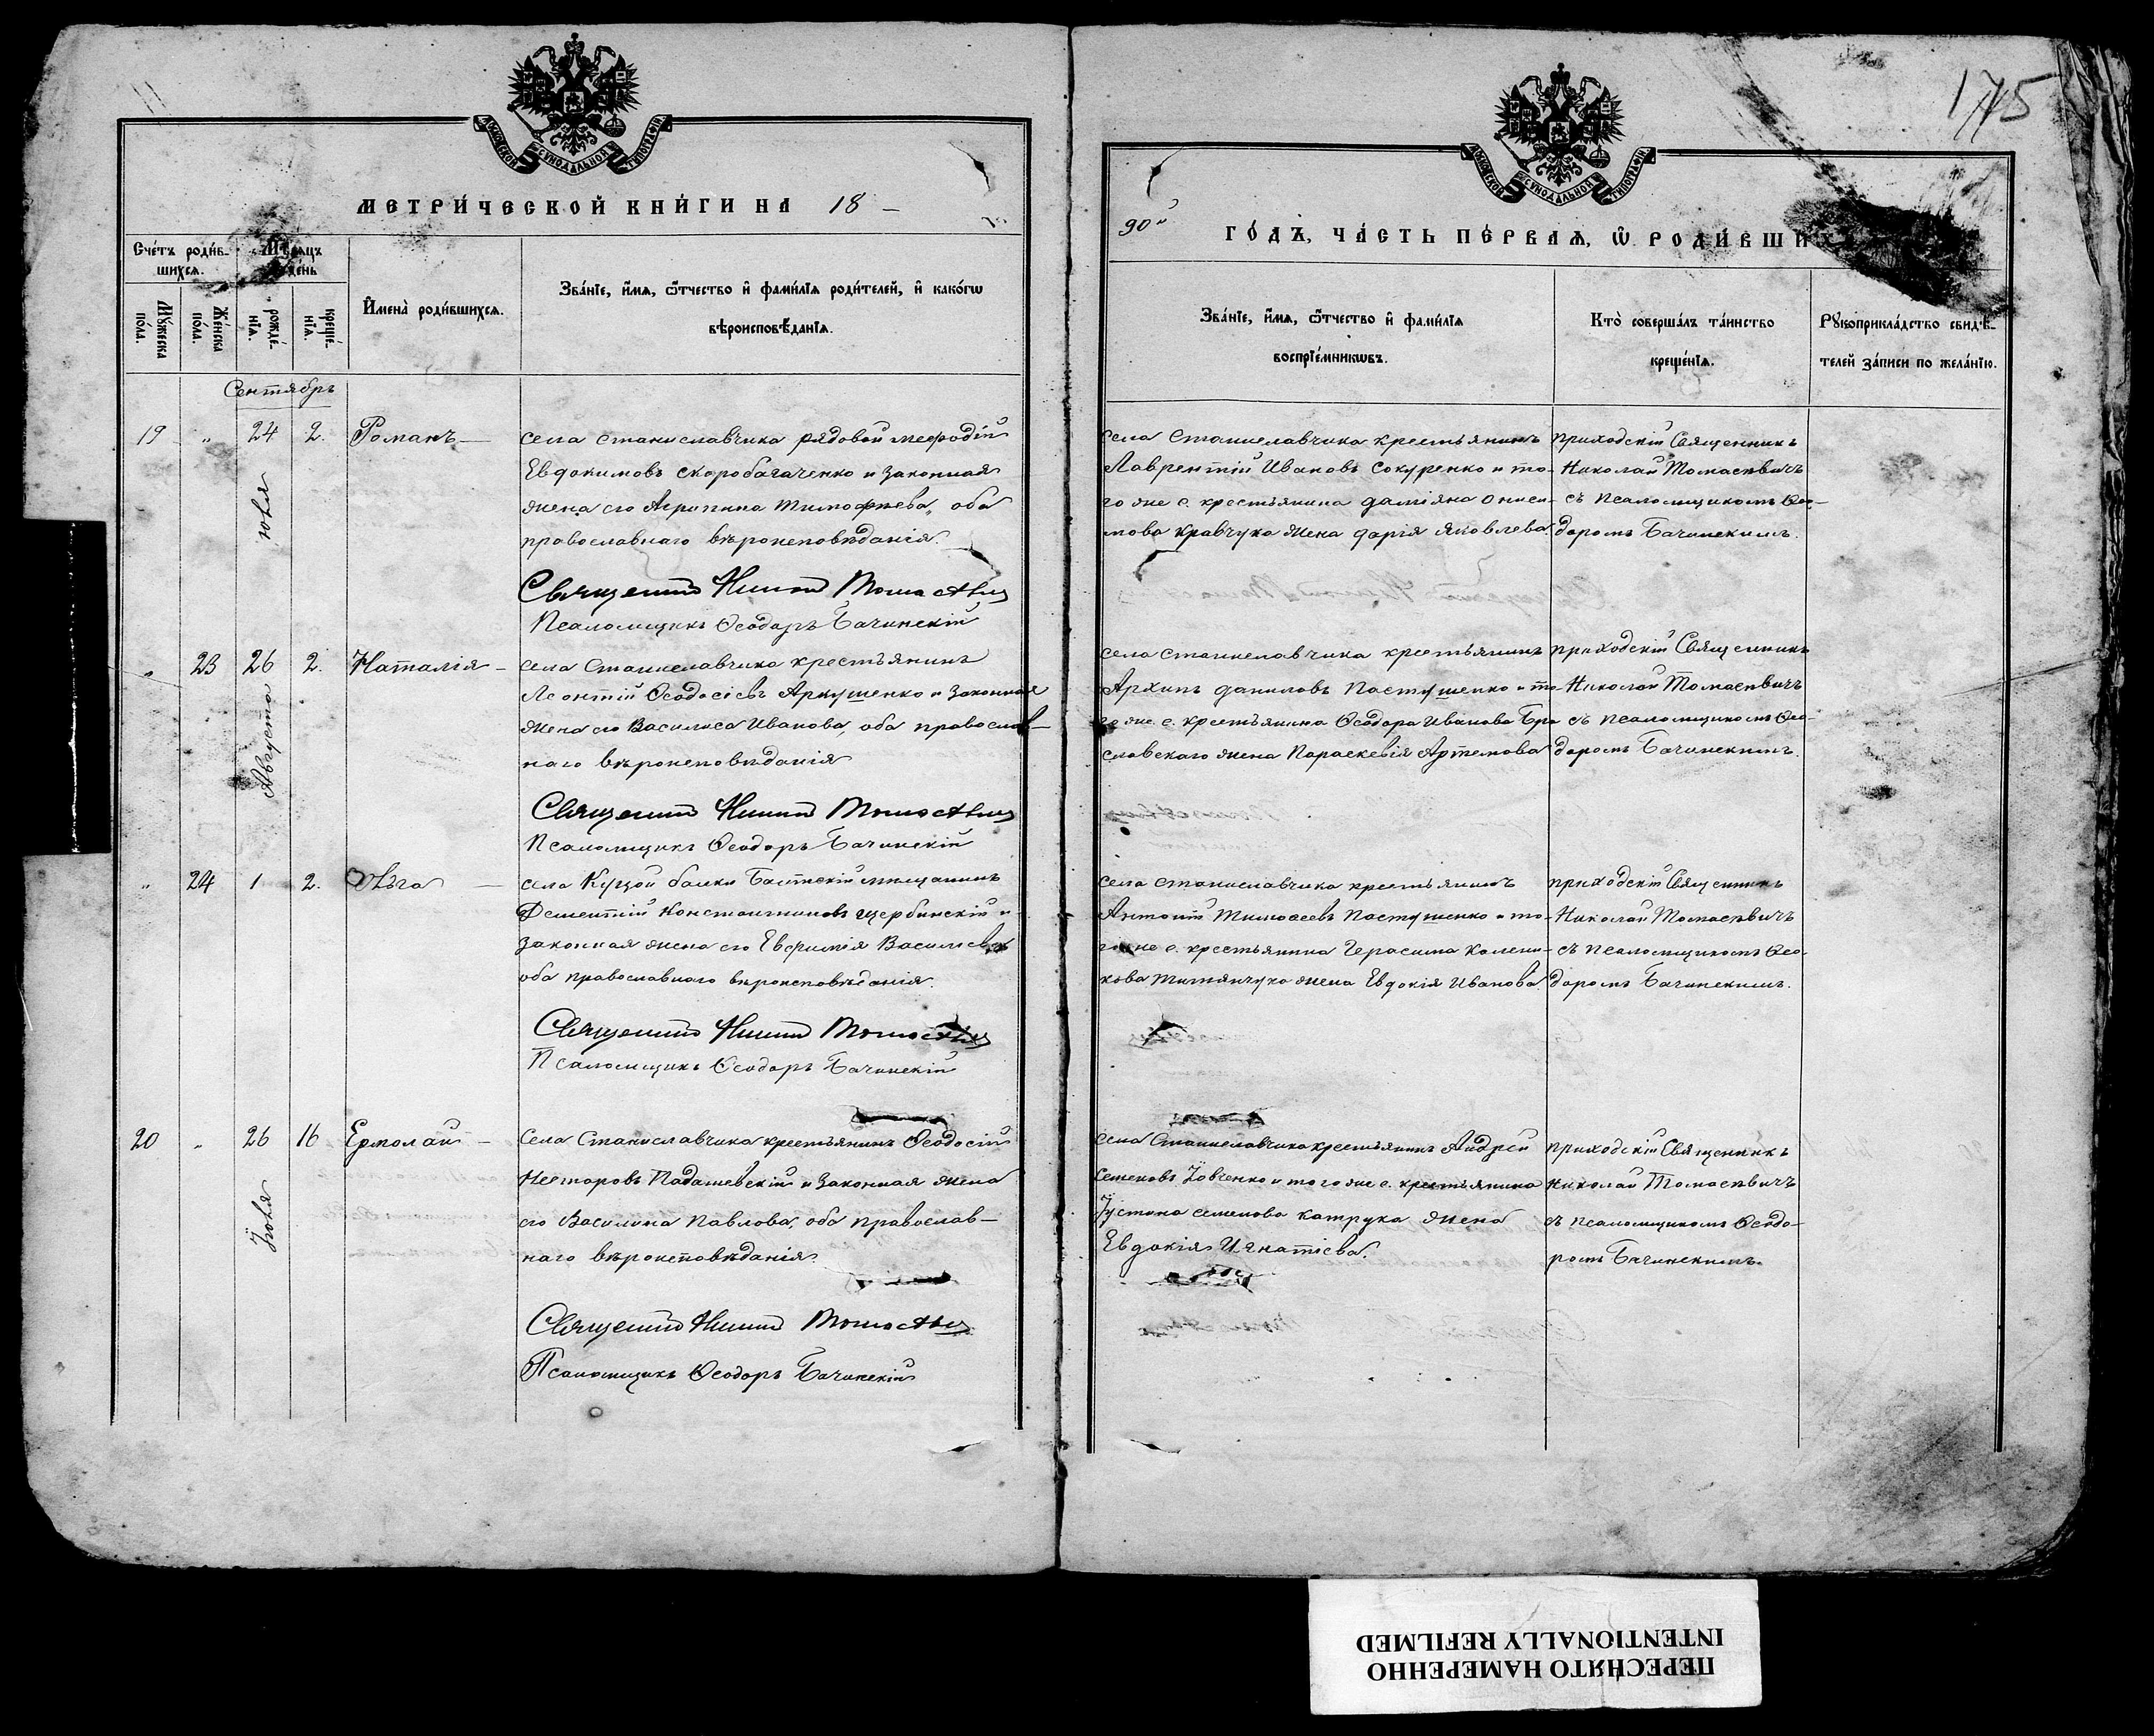 175
МОСКОВСКОЙ СѴНОДАЛЬНОЙ ТИПОГРАФІИ
МОСКОВСКОЙ СѴНОДАЛЬНОЙ ТИПОГРАФІИ
МЕТРИ́ЧЕСКОЙ КНИ́ГИ НА 18 —
90й ГО́ДЪ, ЧА́СТЬ ПЕ́РВАѦ, Ѡ҆ РОДИ́ВШИХ
Сче́тъ роди́в-
шихсѧ.
Мѣ́сѧцъ
де́нь
Мꙋ́жеска по́ла.
Же́нска по́ла.
рожде́-
нїѧ.
креще́-
нїѧ.
И҆мена̀ роди́вшихсѧ.
Зва́нїе, и҆́мѧ, ѻ҆́тчество и҆ фами́лїѧ роди́телей, и҆ како́гѡ
вѣроисповѣ́данїѧ.
Зва́нїе, и҆́мѧ, ѻ҆́тчество и҆ фами́лїѧ
воспрїе́мникѡвъ.
Кто̀ соверша́лъ та́инство
креще́нїѧ.
Рꙋкоприкла́дство свидѣ́-
телей за́писи по жела́нїю.
Сентябрь
19 " 24 2. Романъ —
юля
села Станиславчика рядовой Мефодій
Евдокимовъ Скоробагаченко и законная
жена его Агрипина Тимофѣева, оба
православнаго вѣроисповѣданія.
Священникъ Николай Томасевич
Псаломщикъ Ѳеодоръ Бачинскій
села Станиславчика крестьянинъ
Лаврентій Ивановъ Сокуренко и то-
го же с. крестьянина ДаміянаОниси-
мова Кравчука жена Дарія Яковлева.
приходскій Священникъ
Николай Томасевичъ
съ псаломщикомъ Ѳео-
доромъ Бачинскимъ.
" 23 26 2. Наталія —
Августа
села Станиславчика крестьянинъ
Леонтій Ѳеодосіевъ Аркушенко и законная
жена его Василиса Иванова, оба православ-
наго вѣроисповѣданія
Священникъ Николай Томасевич
Псаломщикъ Ѳеодоръ Бачинскій
села Станиславчика крестьянинъ
Архипъ Даниловъ Пастушенко и то-
го же с. крестьянина Ѳеодора Иванова Бро
словскаго жена Параскевія Артемова
приходскій Священникъ
Николай Томасевичъ
съ псаломщикомъ Ѳео-
доромъ Бачинскимъ.
" 24 1 2. Ольга —
села Куцой балки Балтскій мѣщанинъ
Дементій Константиновъ Щербинскій и
законная жена его Евфимія Васильева
оба православнаго вѣроисповѣданія.
Священникъ Николай Томасевич
Псаломщикъ Ѳеодоръ Бачинскій
села Станиславчика крестьянинъ
Антоній Тимофеевъ Пастушенко и то-
го же с. крестьянина Герасима Калени-
кова жена Евдокія Иванова.
приходскій Священникъ
Николай Томасевичъ
съ псаломщикомъ Ѳео-
доромъ Бачинскимъ.
20 " 26 16 Ермолай —
Іюля
Села Станиславчика крестьянинъ Ѳеодосій
Несторовъ Падашевскій и законная жена
его Василина Павлова, оба православ-
наго вѣроисповѣданія.
Священникъ Николай Томасевич
Псаломщикъ Ѳеодоръ Бачинскій
села Станиславчика крестьянинъ Андрей
Семеновъ Іовченко и того же с. крестьянина
Іустина Семенова Катрука жена
Евдокія Игнатіева.
приходскій Священникъ
Николай Томасевичъ
съ псаломщикомъ Ѳеодо-
ромъ Бачинскимъ.
ПЕРЕСНЯТО НАМЕРЕННО
INTENTIONALLY REFILMED